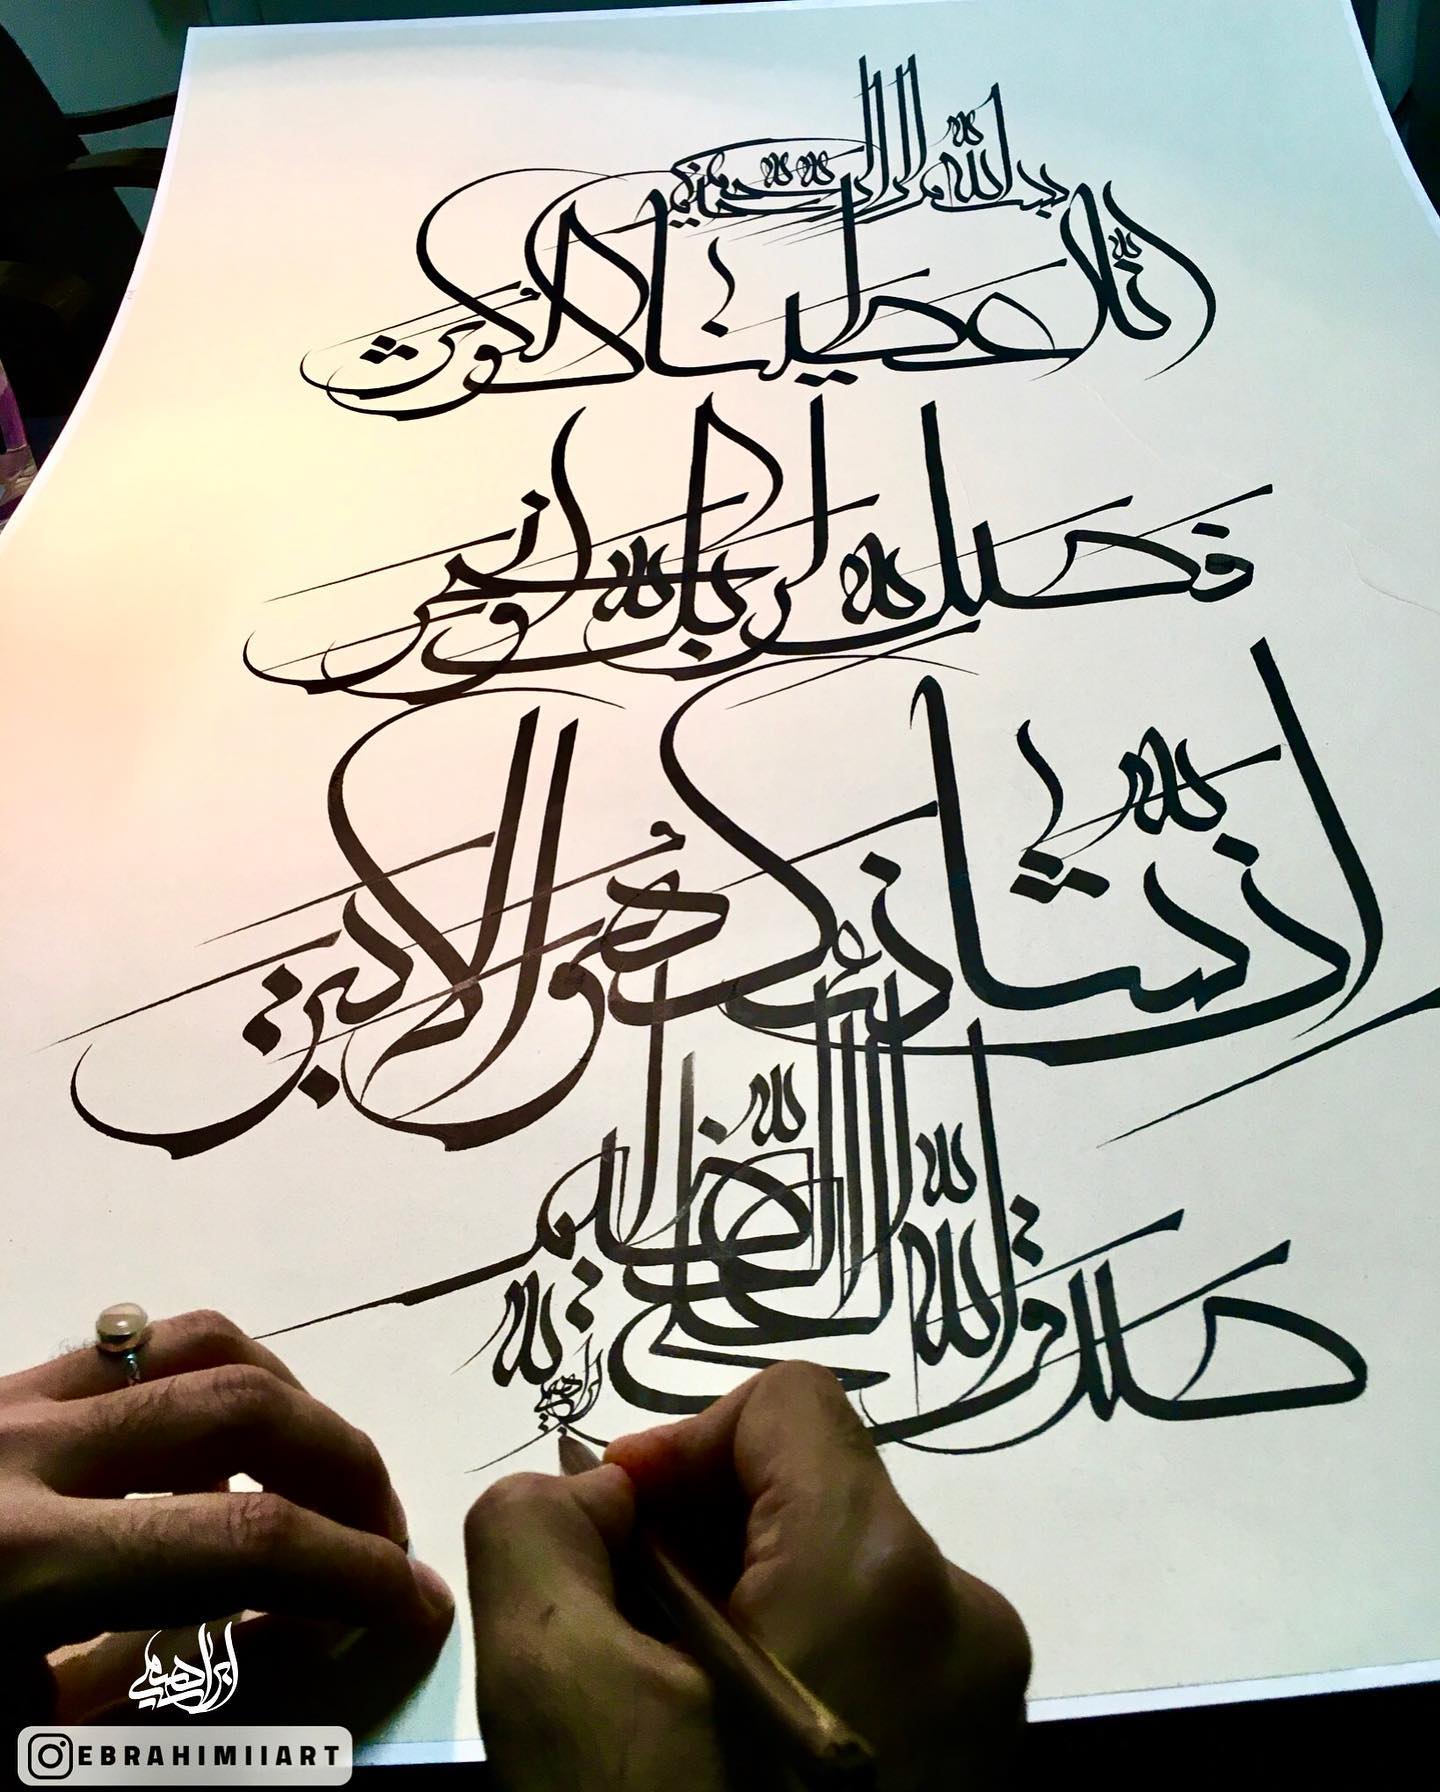 بسم الله الرحمن الرحیم
انا اعطیناک الکوثر
فصل لربک وانحر
ان شانئک هو الابتر
صدق الله العلی العظیم
ابراهیمی
ابراهیمی
EBRAHIMIIART